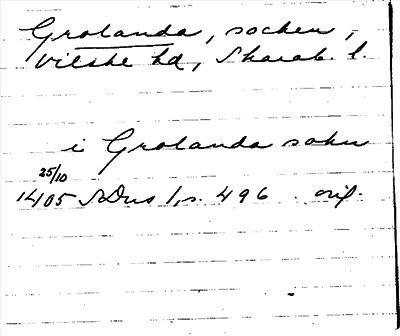 Grolanda, socken,
Vilske hd, Skarab. l.
i Grolanda sokn
25/10
1405 SDns 1, s. 496. orig.